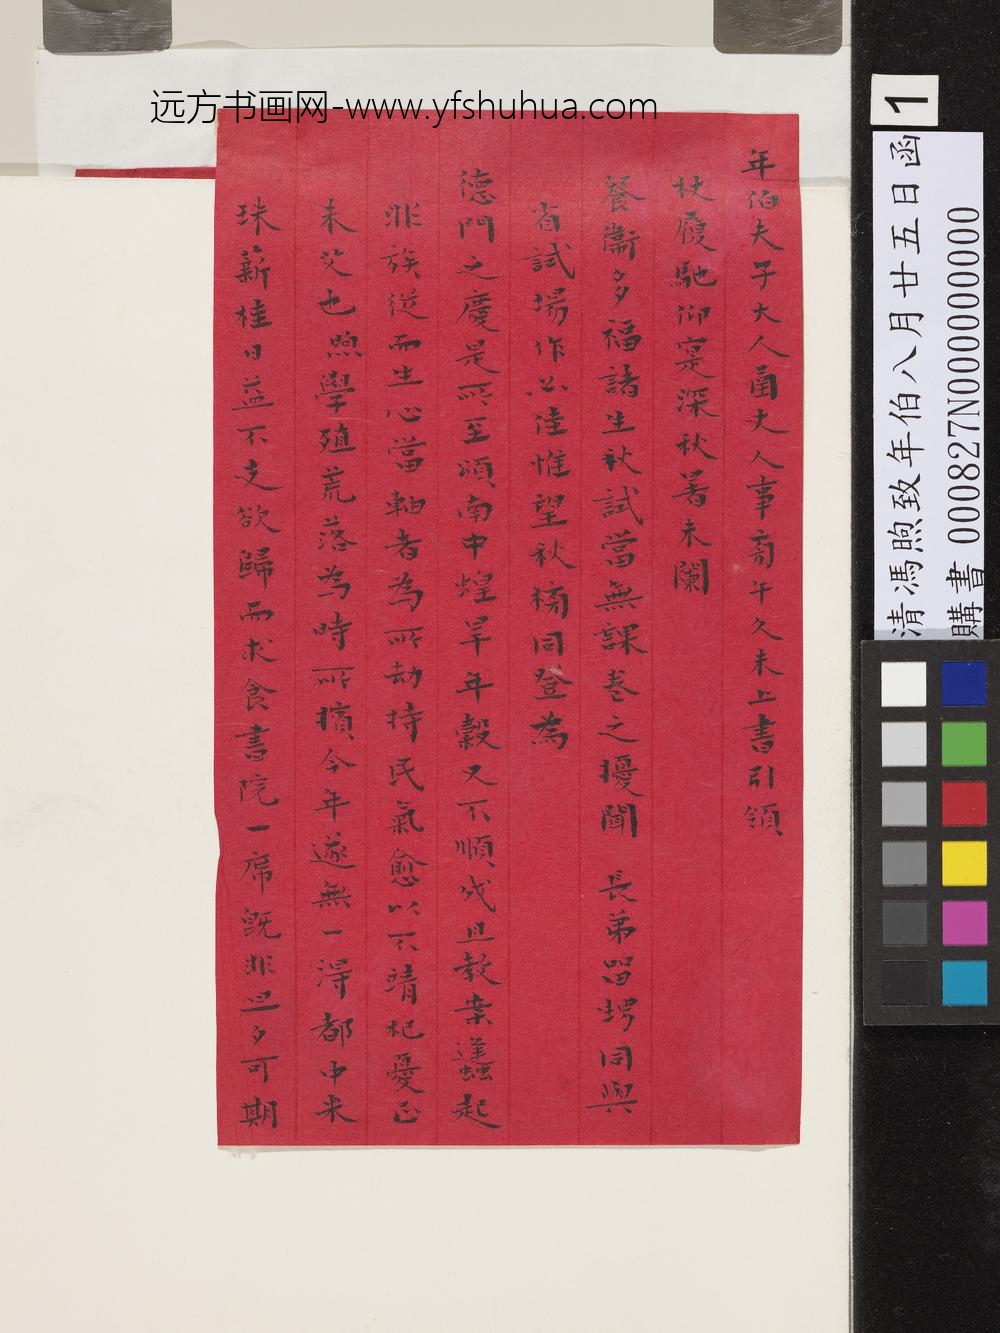 远方书画网-www.yfshuhua.com
年伯夫子大人函丈人事旁午久未上書引領
杖履馳仰寔深秋暑未闌
養衛多福諸生秋試當無課卷之擾聞 長弟留甥同與
省試場作必佳惟望秋榜同登為
德門之慶是所至頌南中蝗旱年穀又不順成且教案蠭起
非族逆而生心當軸者為所劫持民氣愈以不靖杞憂正
未艾也煦學殖荒落為時所擯今年遂無一得都中米
珠薪桂日益不支欲歸而求食書院一席既非旦夕可期
1
清馮煦致年伯八月廿五日函
購書 000827N000000000